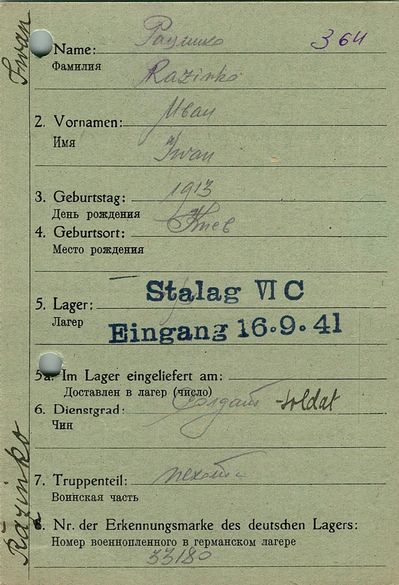 Iwan
Razinko
364
Name:
Фамилия
Razinko
2. Vornamen:
Иван
Имя
Iwan
3. Geburtstag: 1913
День рождения
4. Geburtsort: Киев
Место рождения
Stalag VI C
5. Lager:
Лагер
Eingang 16.9.41
5a. Im Lager eingeliefert am:
Доставлен в лагер (число)
6. Dienstgrad: Солдат - soldat
Чин
7. Truppenteil: пехота
Воинская часть
8. Nr. der Erkennungsmarke des deutschen Lagers:
Номер военнопленного в германском лагере
33180